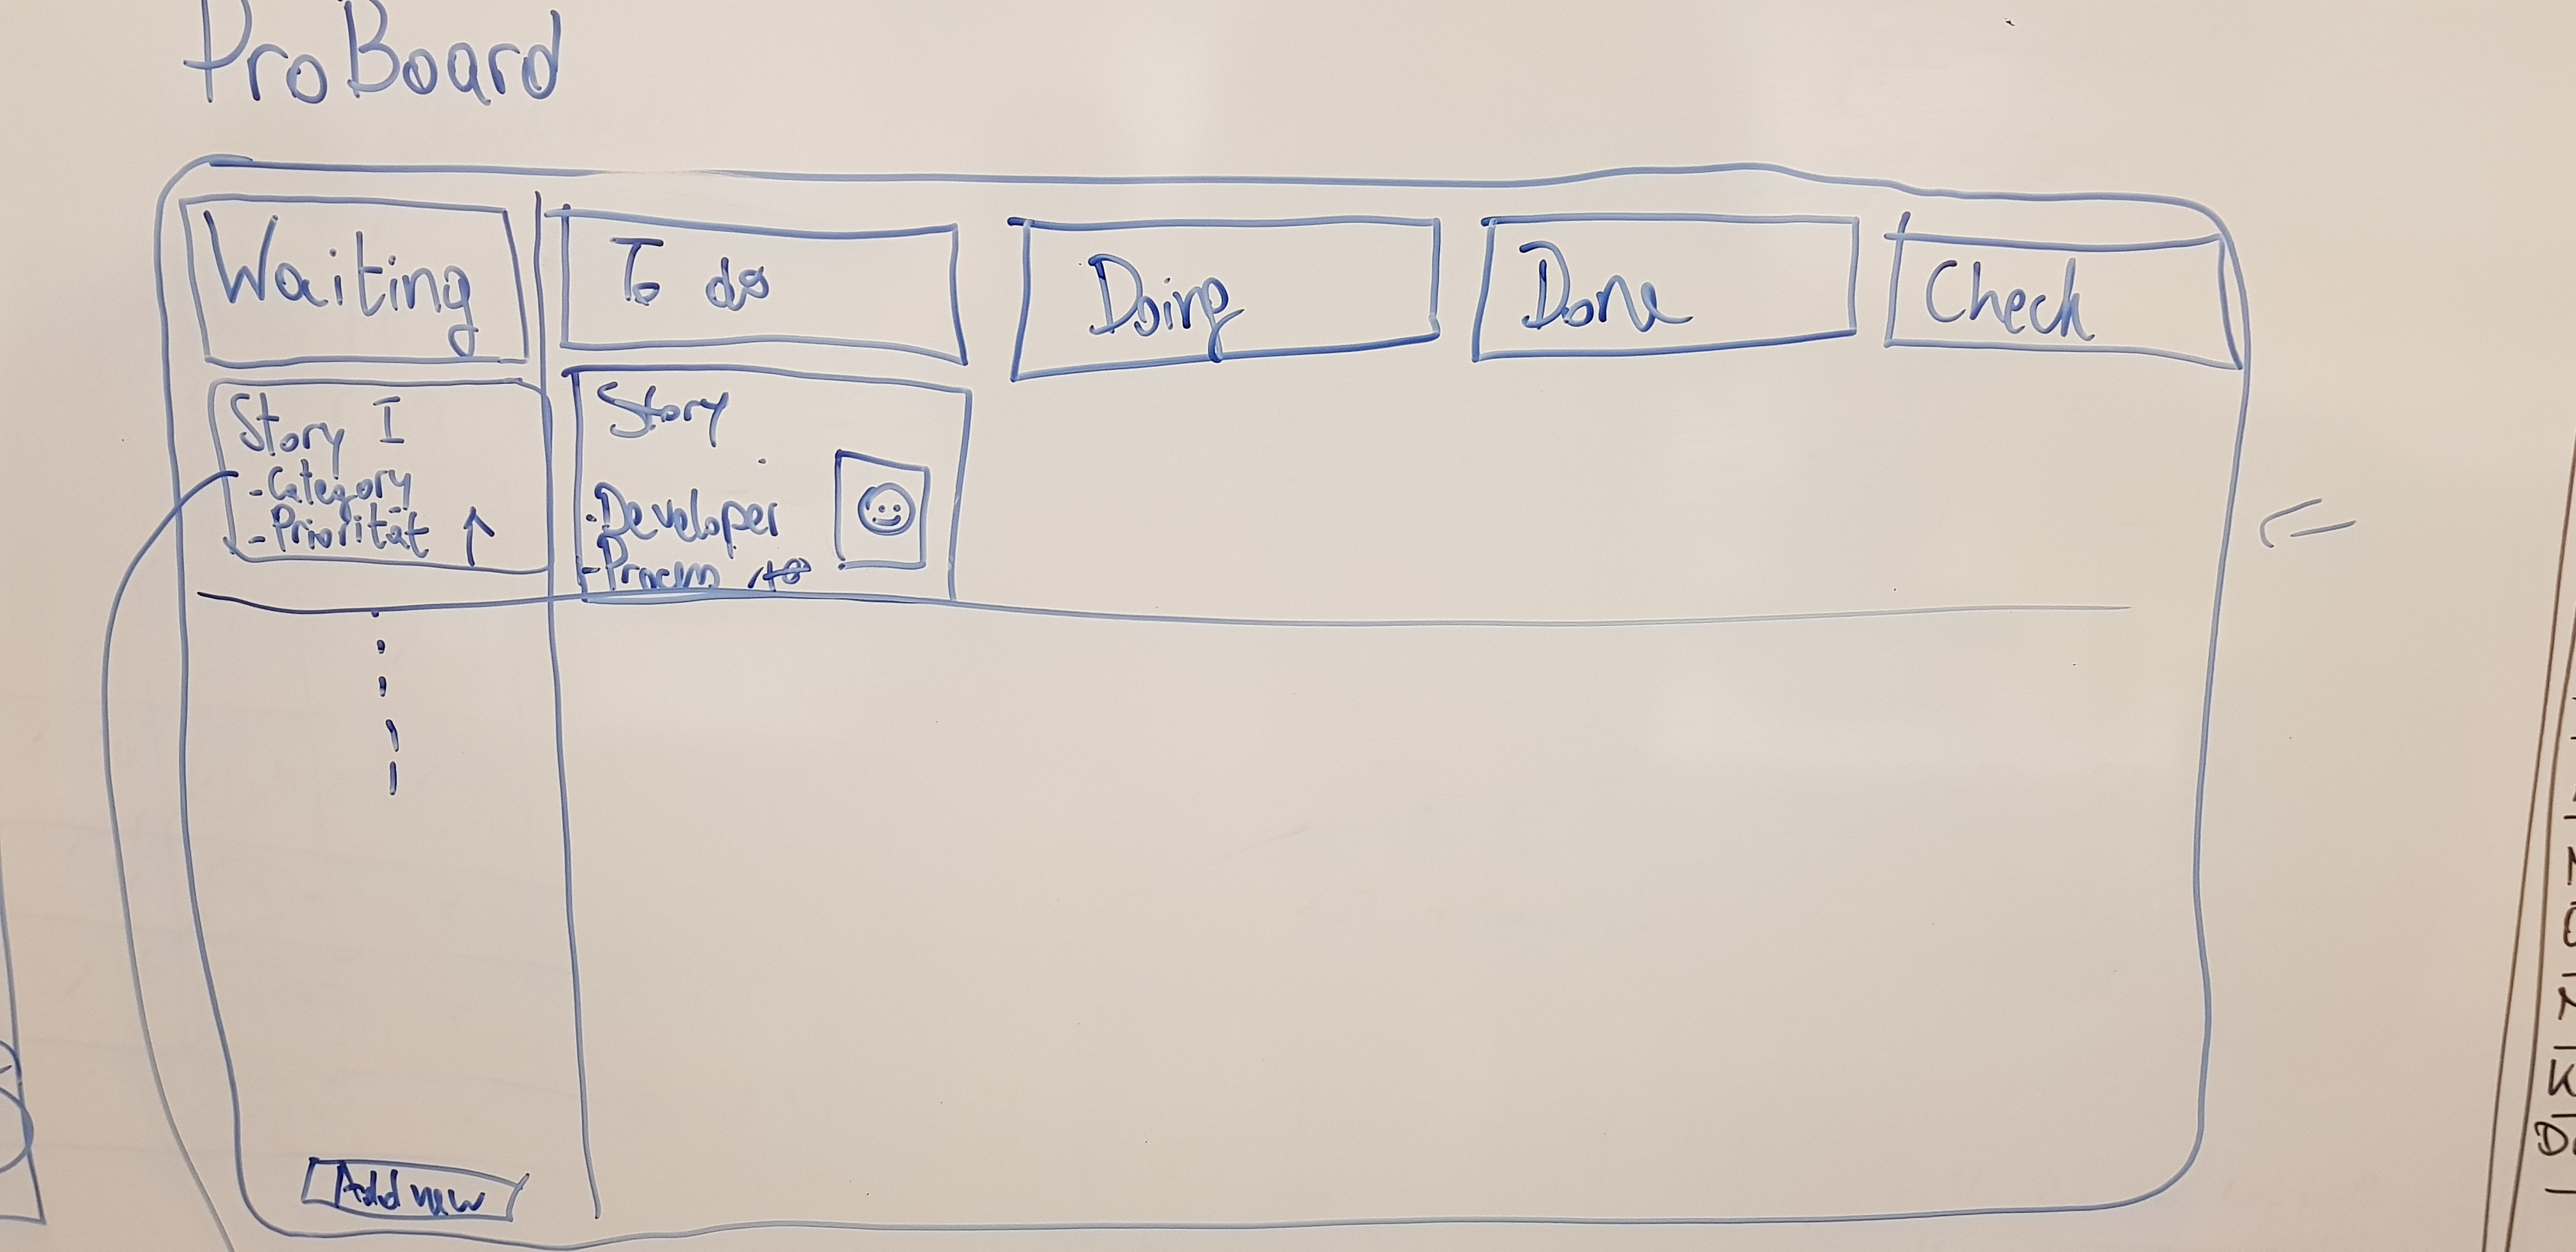 ProBoard
Waiting
To do
Doing
Done
Check
Story I
-Category
-Priorität ↑
Story
-Developer
Add new